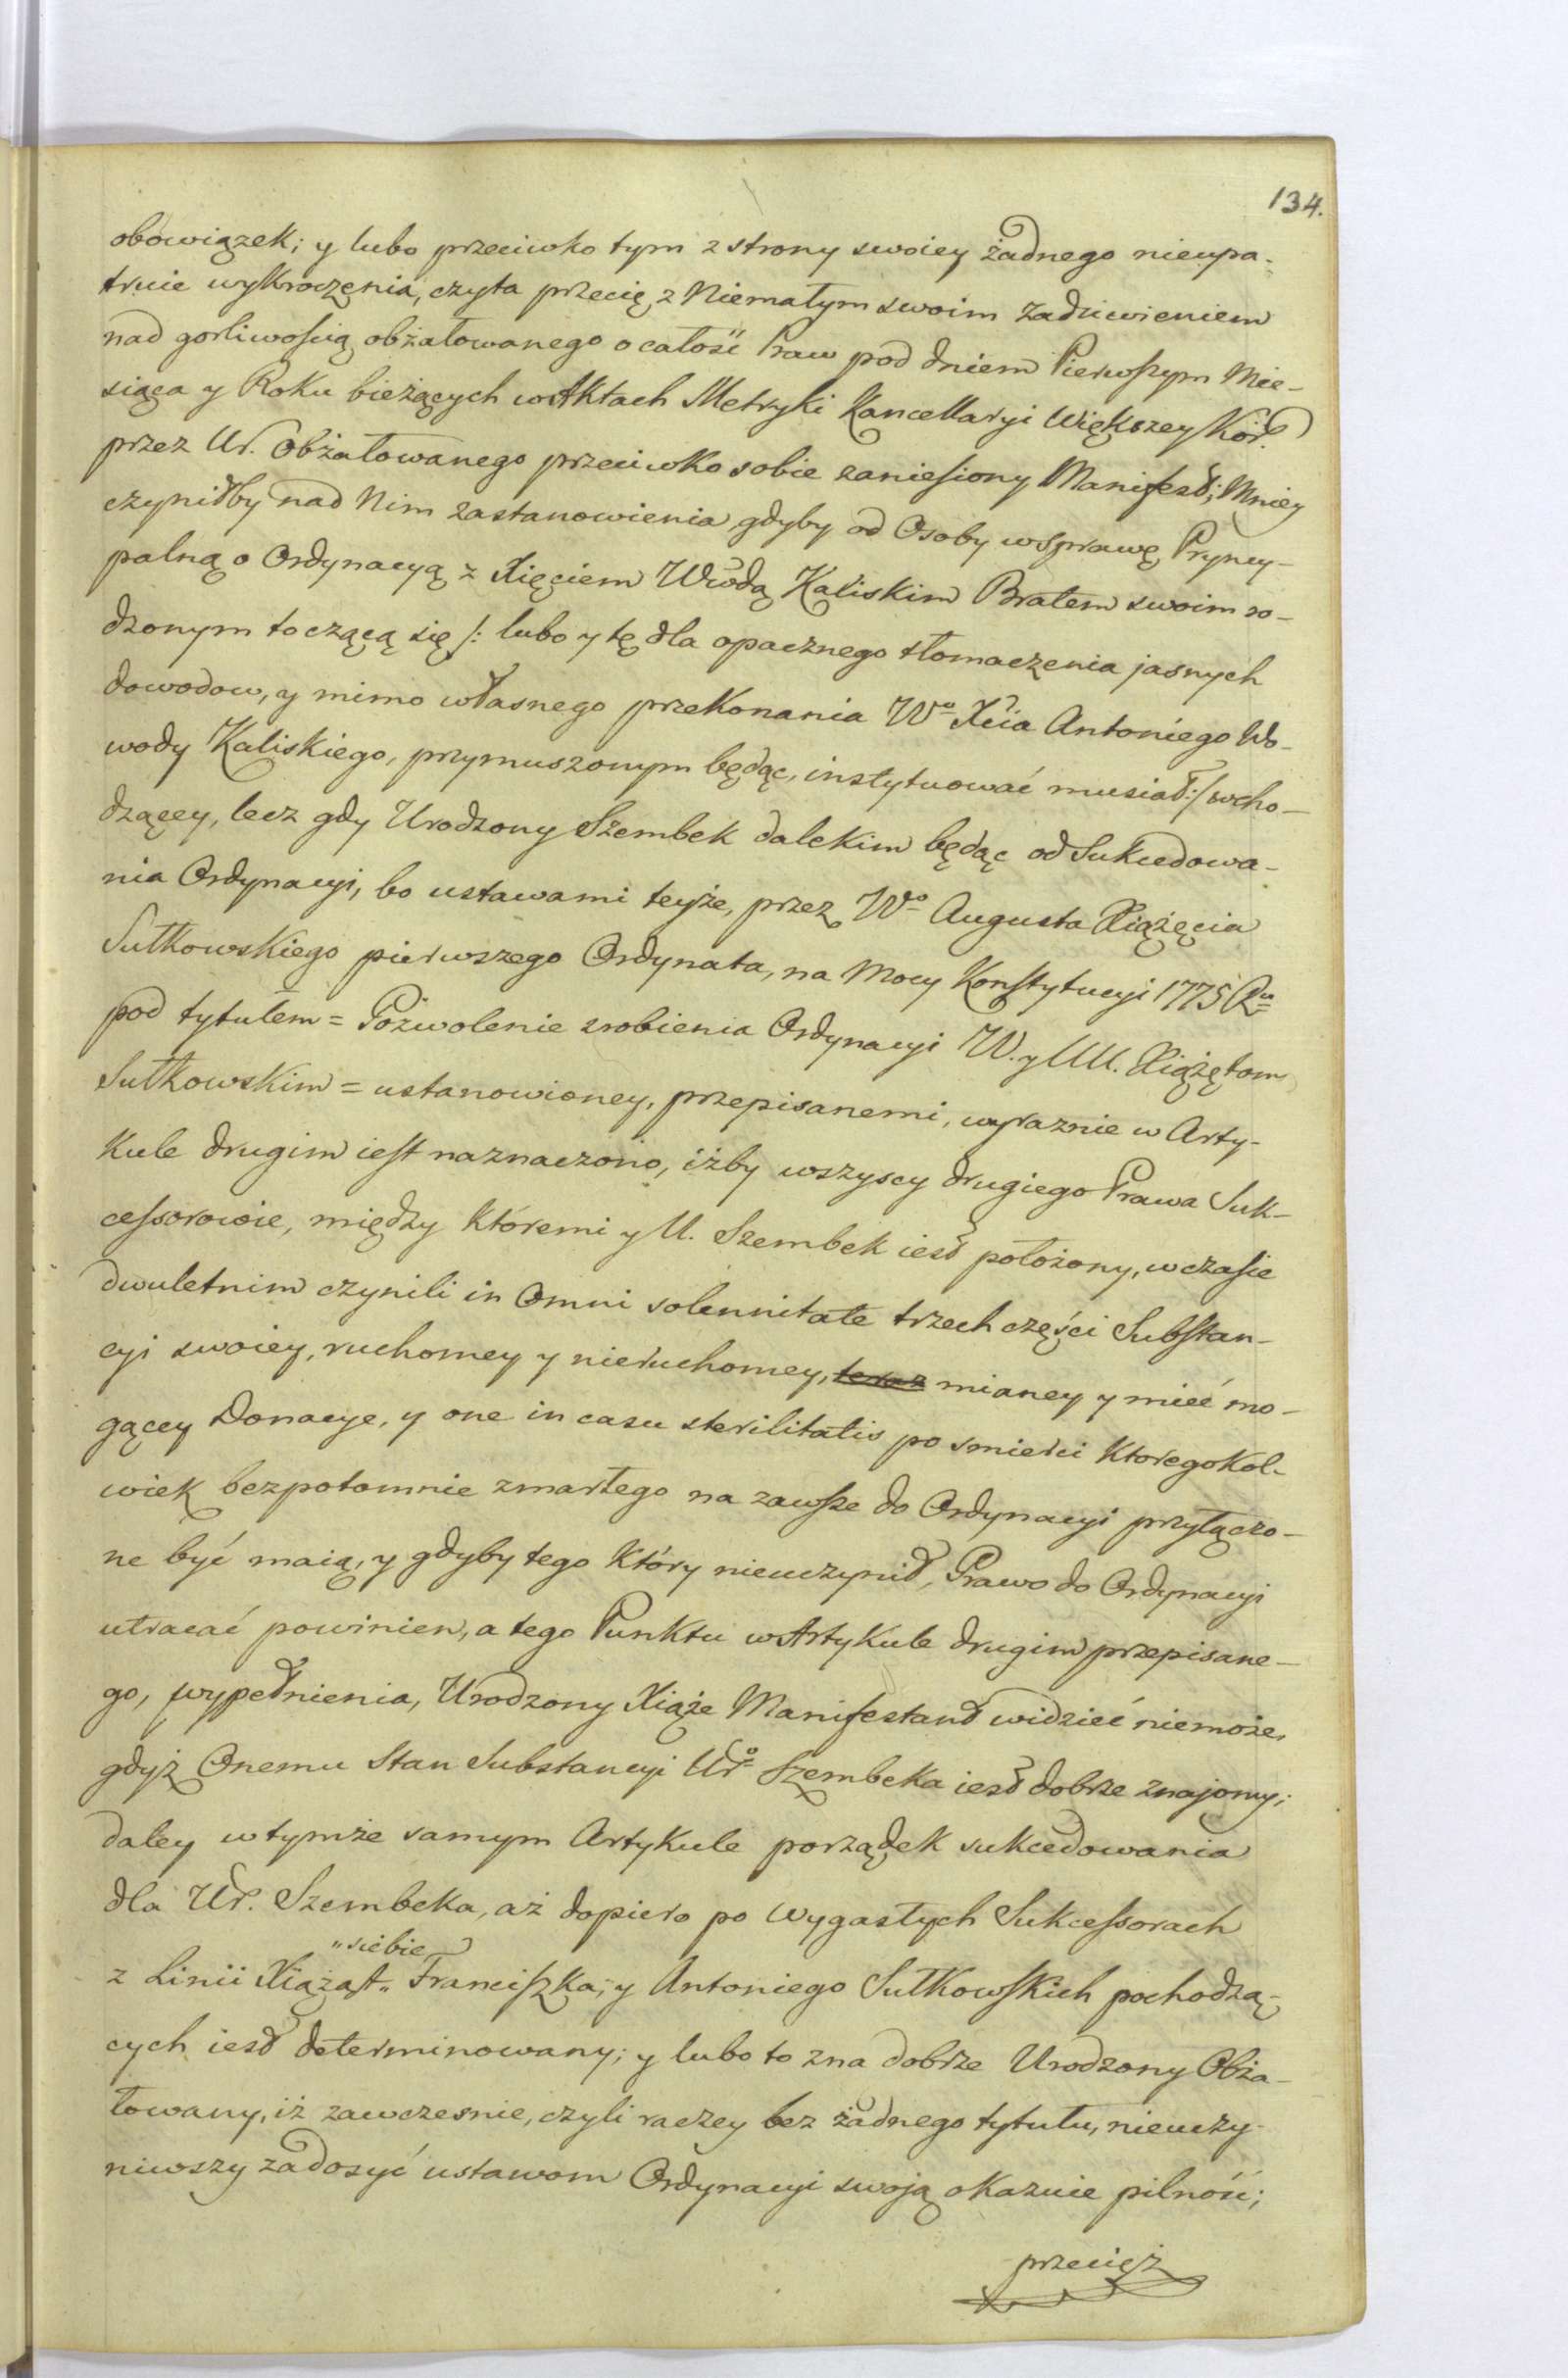 134.
obowiązek; y lubo przeciwko tym z strony swoiey żadnego nieupa-
truie wykroczenia, czyta przecię z Niemałym swoim zadziwieniem
nad gorliwością obżałowanego o całość Praw pod dniem Pierwszym Mie-
siąca y Roku bieżących w Aktach Metryki Kancellaryi Większey Kor.
przez Ur. Obżałowanego przeciwko sobie zaniesiony Manifest; Mniey
czyniłby nad Nim zastanowienia gdyby od Osoby w sprawę Pryncy-
palną o Ordynacyą z Xięciem Wdą Kaliskim Bratem swoim ro-
dzonym toczącą się /: lubo y tę dla opacznego tłomaczenia jasnych
dowodow, y mimo własnego przekonania Wo Xcia Antoniego Wo-
wody Kaliskiego, przymuszonym będąc, instytuować musiał :/ wcho-
dzącey, lecz gdy Urodzony Szembek dalekim będąc od Sukcedowa-
nia Ordynacyi, bo ustawami teyże, przez Wo Augusta Xiążęcia
Sułkowskiego pierwszego Ordynata, na Mocy Konstytucyi 1775 Ru
pod tytułem = Pozwolenie zrobienia Ordynacyi W. y UU. Xiążętom
Sułkowskim = ustanowioney, przepisanemi, wyraznie w Arty-
kule drugim iest naznaczono, iżby wszyscy drugiego Prawa Suk-
cessorowie, między któremi y U. Szembek iest położony, w czasie
dwuletnim czynili in Omni solennitate trzech części Substan-
cyi swoiey, ruchomey y nieruchomey, teraz mianey y mieć mo-
gącey Donacye, y one in casu sterilitatis po smierci ktoregokol-
wiek bezpotomnie zmarłego na zawsze do Ordynacyi przyłączo-
ne być maią, y gdyby tego który nieuczynił, Prawo do Ordynacyi
utracać powinien, a tego Punktu w Artykule drugim przepisane-
go, wypełnienia, Urodzony Xiąże Manifestant widzieć niemoże,
gdyż Onemu Stan Substancyi Uro Szembeka iest dobrze znajomy;
daley w tymże samym Artykule porządek sukcedowania
dla Ur. Szembeka, aż dopiero po wygasłych Sukcessorach
"siebie
z Linii Xiążąt " Franciszka, y Antoniego Sułkowskich pochodzą-
cych iest determinowany; y lubo to zna dobrze Urodzony Obża-
łowany, iż zawczesnie, czyli raczey bez żadnego tytułu, nieuczy-
niwszy zadosyć ustawom Ordynacyi swoją okazuie pilność;
przecięż